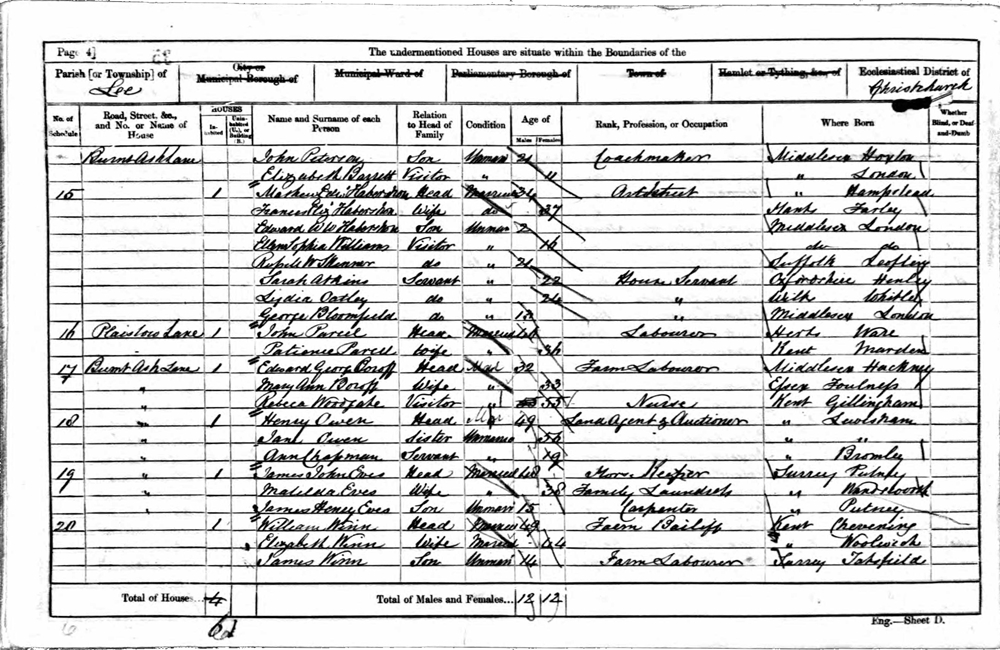 Page 4]
The undermentioned Houses are situate within the Boundaries of the
Parish [or Township] of Lee
City or Municipal Borough of
Municipal Ward of
Parliamentary Borough of
Town of
Hamlet or Tything, &c., of
Ecclesiastical District of Christchurch
No. of Schedule
Road, Street, &c., and No. or Name of House
HOUSES
Inhabited
Uninhabited (U.), or Building (B.)
Name and Surname of each Person
Relation to Head of Family
Condition
Age of
Males
Females
Rank, Profession, or Occupation
Where Born
Whether Blind, or Deaf-and-Dumb
Burnt Ash Lane John Peterson Son Unmar 21 Coachmaker Middlesex Hoxton
Elizabeth Barrett Visitor " 11 " London
15 1 Habershon Head Married 34 " Hampstead
Habershon Wife do 37 Hants Farley
Edward W W Habershon Son Unmar 2 Middlesex London
Ellen Sophia Williams Visitor " 16 do do
W Skinner do " 21 Suffolk
Sarah Atkins Servant " 22 House Servant Oxfordshire Henley
Lydia Oatley do " 24 " Wilts
George Bloomfield do " 12 Middlesex London
16 Plaistow Lane 1 John Head Married Labourer Herts Ware
Patience Wife " 36 Kent Marden
17 Burnt Ash Lane 1 Edward Boroff Head Mar 32 Farm Labourer Middlesex Hackney
" Mary Ann Boroff Wife " 33 Essex Foulness
" Rebeca Woodgate Visitor 55 Nurse Kent Gillingham
18 " 1 Henry Owen Head 49 Land Agent & Auctioner " Lewisham
" Jane Owen Sister 56 " "
" Ann Chapman Servant 19 " Bromley
19 " 1 James John Eves Head Married Horse Keeper Surrey Putney
" Matilda Eves Wife " 38 Family Laundress " Wandsworth
" James Henry Eves Son Unmar 15 Carpenter " Putney
20 " 1 William Winn Head Married 49 Farm Bailiff Kent Chevening
" Elizabeth Winn Wife Married 44 " Woolwich
" James Winn Son Unmar 14 Farm Labourer Surrey Tatsfield
Total of Houses... 4
Total of Males and Females... 12 12
Eng.—Sheet D.
6